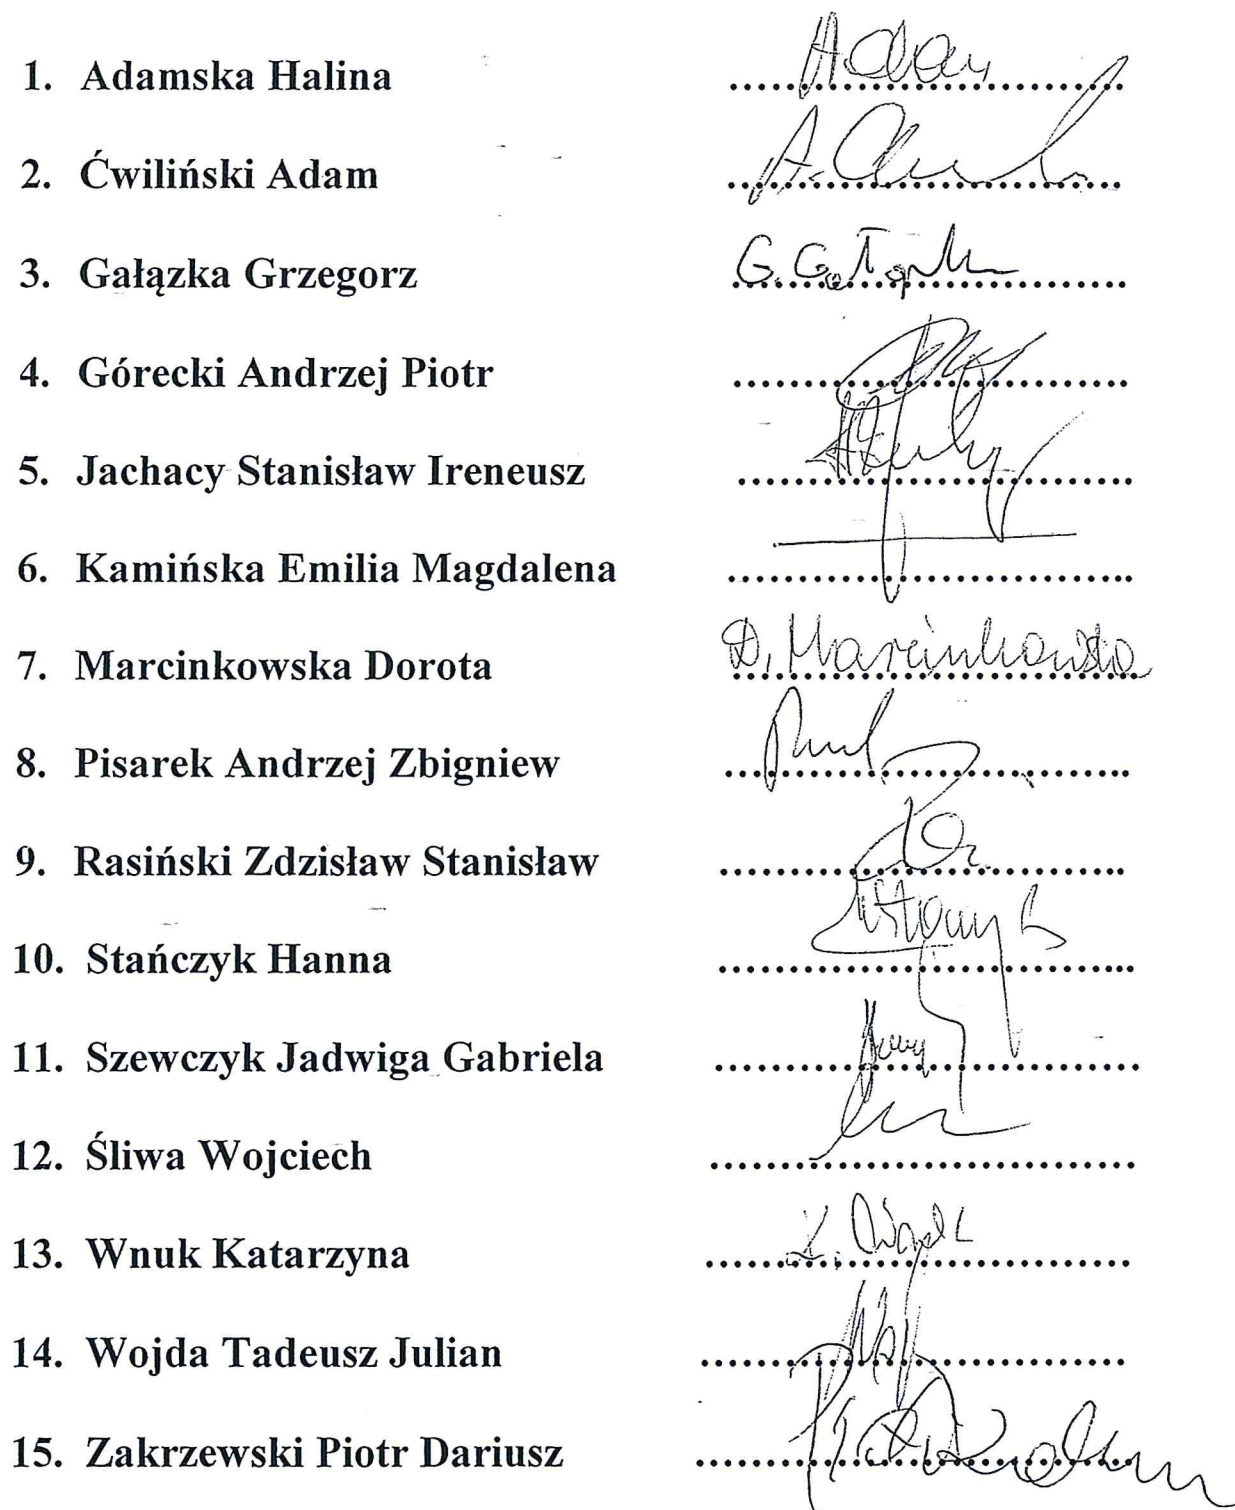 1. Adamska Halina
2. Ćwiliński Adam
3. Gałązka Grzegorz G. Gałązka
4. Górecki Andrzej Piotr
5. Jachacy Stanisław Ireneusz
6. Kamińska Emilia Magdalena
7. Marcinkowska Dorota D. Marcinkowska
8. Pisarek Andrzej Zbigniew
9. Rasiński Zdzisław Stanisław
10. Stańczyk Hanna
11. Szewczyk Jadwiga Gabriela
12. Śliwa Wojciech
13. Wnuk Katarzyna
14. Wojda Tadeusz Julian
15. Zakrzewski Piotr Dariusz